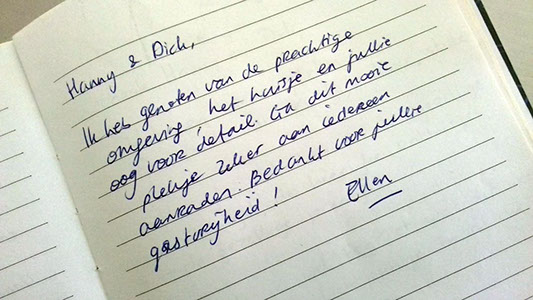 Hanny & Dich,
Ik heb genoten van de prachtige
omgeving, het huisje en jullie
oog voor detail. Ga dit mooie
plekje zeker aan iedereen
aanraden. Bedankt voor jullie
gastvrijheid!
Ellen